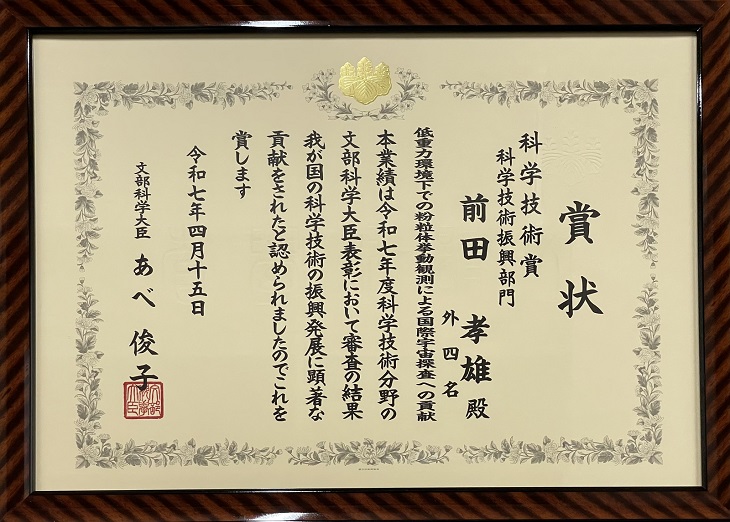 賞状
科学技術賞
科学技術振興部門
前田孝雄殿
外四名
低重力環境下での粉粒体挙動観測による国際宇宙探査への貢献
本業績は令和七年度科学技術分野の
文部科学大臣表彰において審査の結果
我が国の科学技術の振興発展に顕著な
貢献をされたと認められましたのでこれを
賞します
令和七年四月十五日
文部科学大臣 あべ俊子